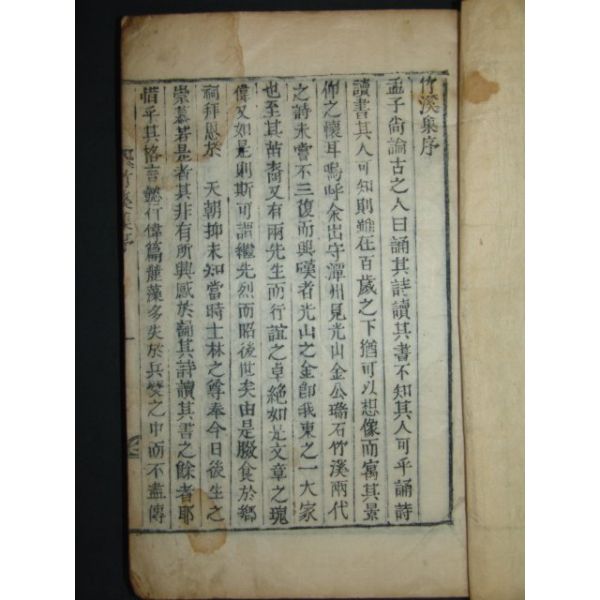 竹溪集序
孟子尙論古之人曰誦其詩讀其書不知其人可乎誦詩
讀書其人可知則雖在百歲之下猶可以想像而寓其景
仰之懷耳嗚呼余出守潭州見光山金公璠石竹溪兩代
之詩未嘗不三復而興嘆者光山之金卽我東之一大家
也至其苗裔又有兩先生而行誼之卓絶如是文章之瑰
偉又如是則斯可謂繼先烈而昭後世矣由是腏食於鄕
祠拜恩於 天朝抑未知當時士林之尊奉今日後生之
崇慕若是者其非有所興感於誦其詩讀其書之餘者耶
惜乎其格言懿行偉篇蓮藻多失於兵燹之中而不盡傳
竹溪集序
一